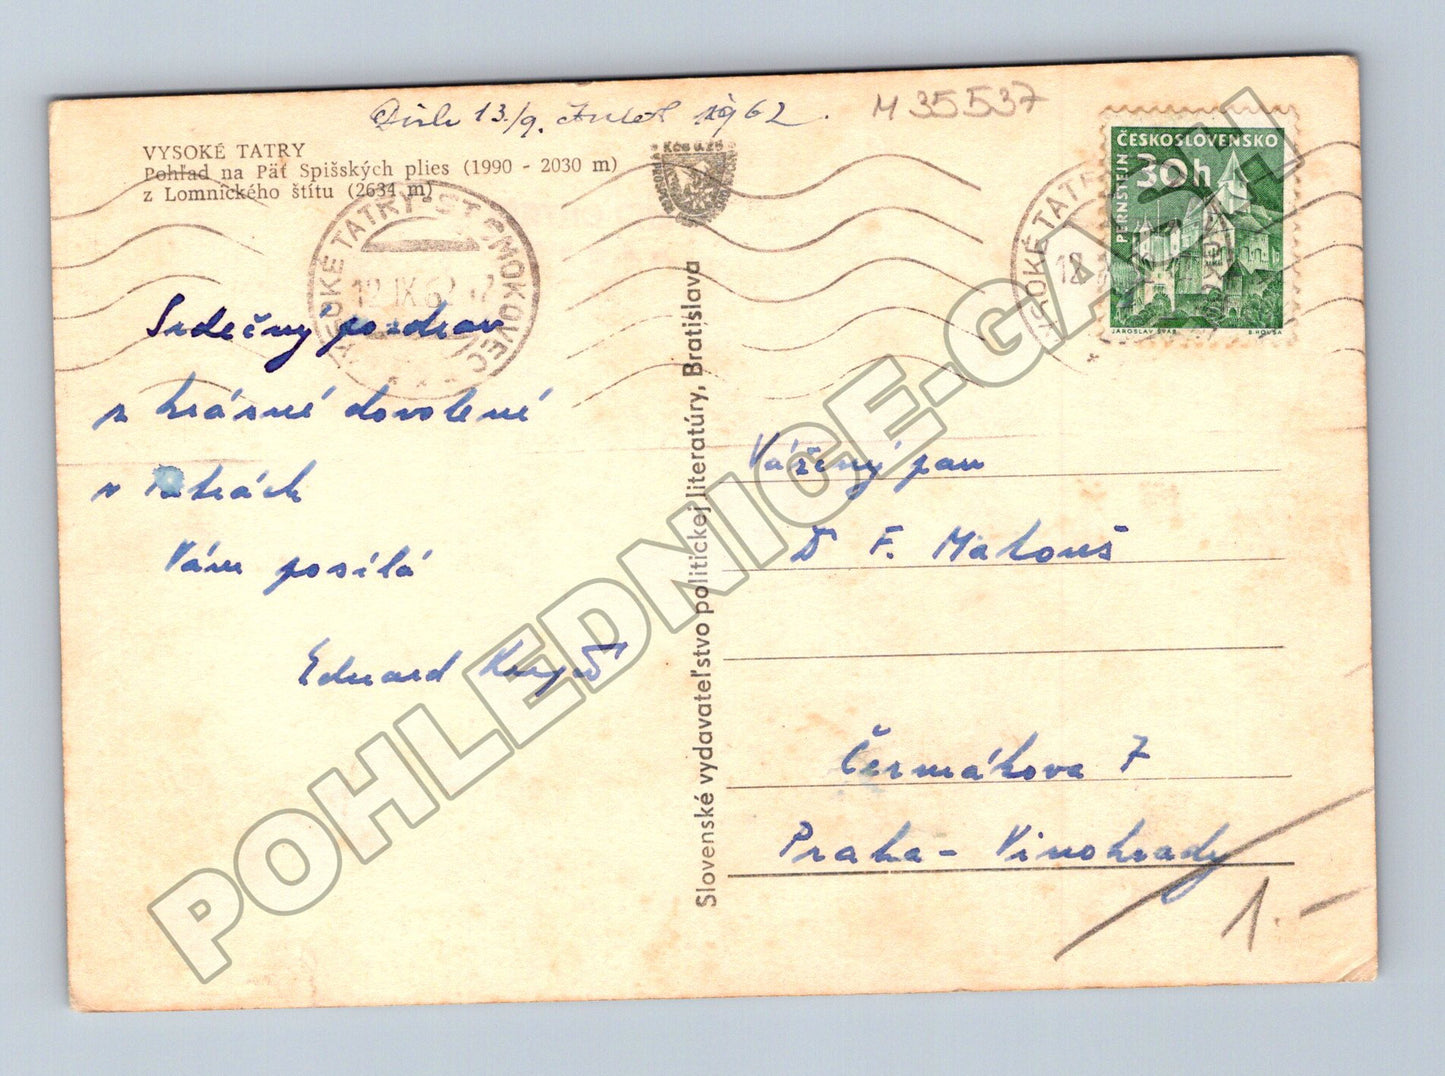 13./9. 1962.
M 35537
VYSOKÉ TATRY
Pohľad na Päť Spišských plies (1990 - 2030 m)
z Lomnického štítu (2634 m)
Kčs 0.25
VYSOKÉ TATRY-ST. SMOKOVEC
12. IX. 62
VYSOKÉ TATRY
12
ČESKOSLOVENSKO
30h
PERNŠTEJN
JAROSLAV ŠVÁB
B. HOUSA
Srdečný pozdrav
z krásné dovolené
v Tatrách
Vám posílá
Eduard
Slovenské vydavateľstvo politickej literatúry, Bratislava
Vážený pan
D F. Matouš
Čermákova 7
Praha - Vinohrady
1.-
POHLEDNICE-GALI.CZ